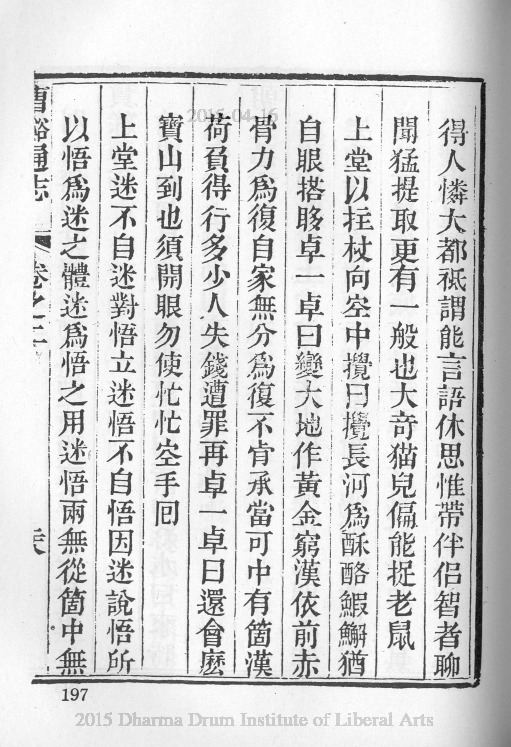 得人憐大都祗謂能言語休思惟帶伴侶智者聊
聞猛提取更有一般也大竒猫兒偏能捉老鼠
上堂以拄杖向空中攪曰攪長河為酥酪鰕䲒猶
自眼搭眵卓一卓曰變大地作黃金窮漢依前赤
骨力為復自家無分為復不肯承當可中有箇漢
荷負得行多少人失錢遭罪再卓一卓曰還會麽
寶山到也須開眼勿使忙忙空手回
上堂迷不自迷對悟立迷悟不自悟因迷說悟所
以悟為迷之體迷為悟之用迷悟兩無從箇中無
曹谿通志
卷之二
2015-04-16
197
2015 Dharma Drum Institute of Liberal Arts